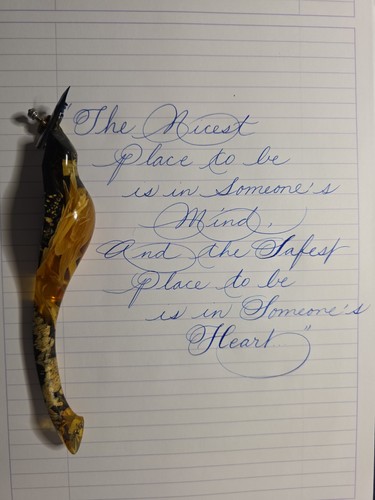 "The Nicest
Place to be
is in Someone's
Mind,
And the Safest
Place to be
is in Someone's
Heart"